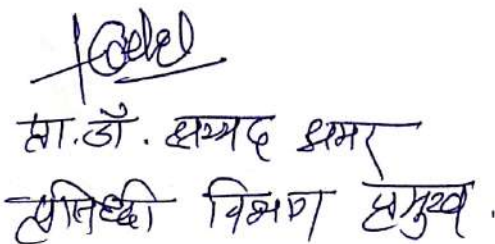 प्रा.डॉ. सय्यद अमर
प्रसिध्दी विभाग प्रमुख.